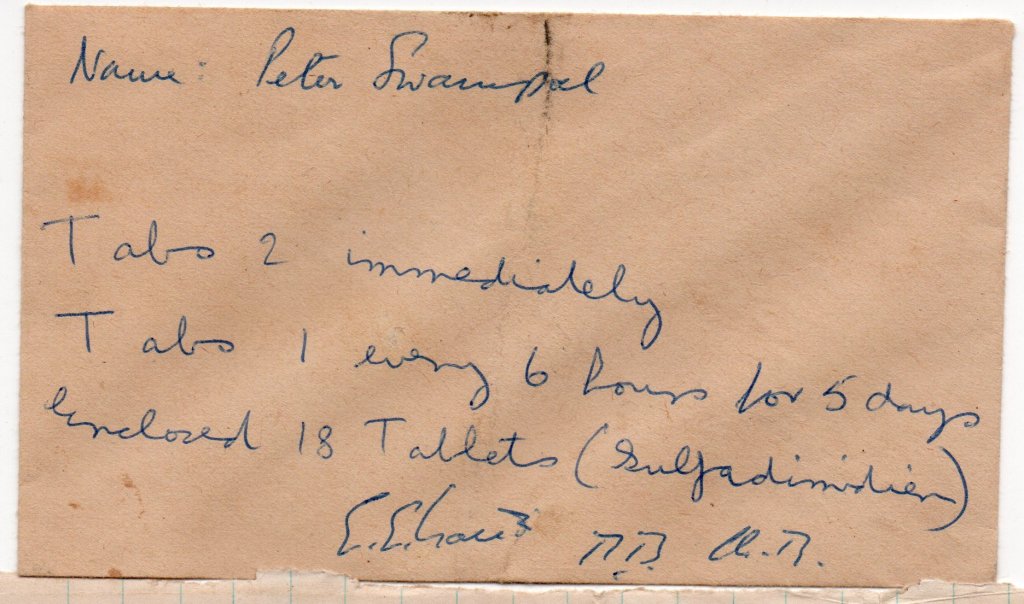 Name: Peter Swampol
Tabs 2 immediately
Tabs 1 every 6 hours for 5 days
Enclosed 18 Tablets (Sulfadimidien)